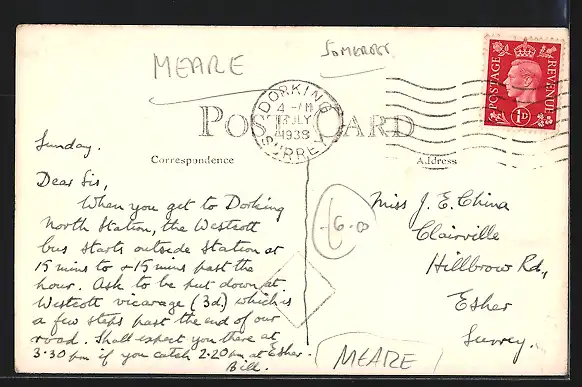 MEARE
SOMERSET
POSTAGE
REVENUE
1D
DORKING
4 - PM
JLY
1938
SURREY
POST CARD
Correspondence
Address
Sunday.
Dear Sis,
When you get to Dorking
North Station, the Westcott
bus starts outside Station at
15 mins to + 15 mins past the
hour. Ask to be put down at
Westcott vicarage (3d.) which is
a few steps past the end of our
road. Shall expect you there at
3.30 pm if you catch 2.20 pm at Esher.
Bill.
Miss J. E. China
Clairville
Hillbrow Rd.,
Esher
Surrey.
MEARE